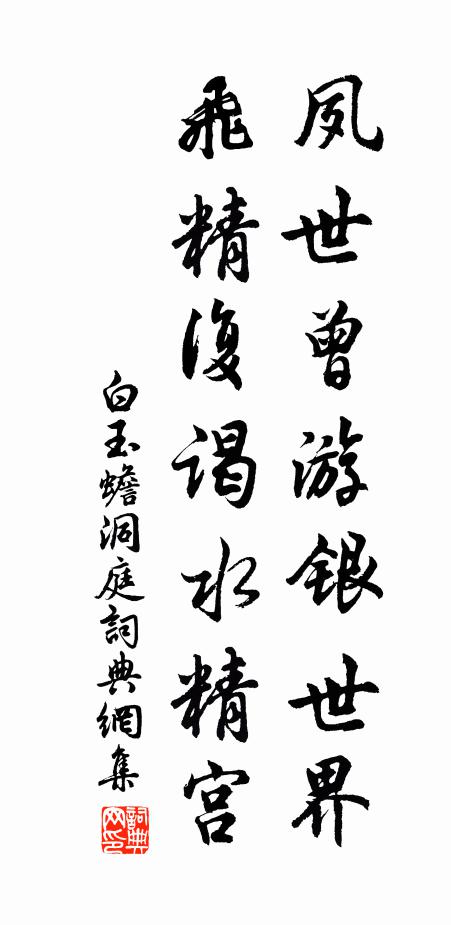 夙世曾游銀世界
飛精復謁水精宮
白玉蟾洞庭詞典網集
詞典網印